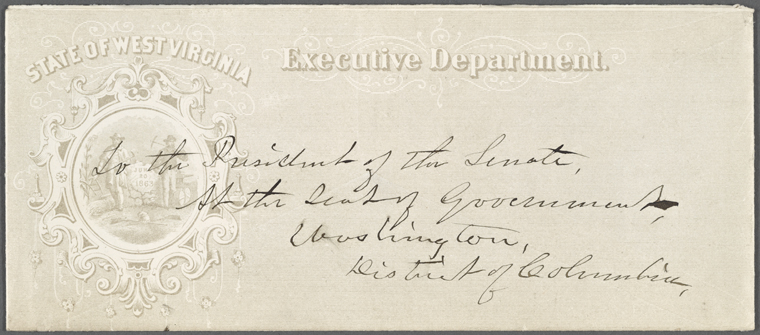 STATE OF WEST VIRGINIA
Executive Department.
To the President of the Senate,
At the Seat of Government,
Washington,
District of Columbia,
JUNE
20
1863